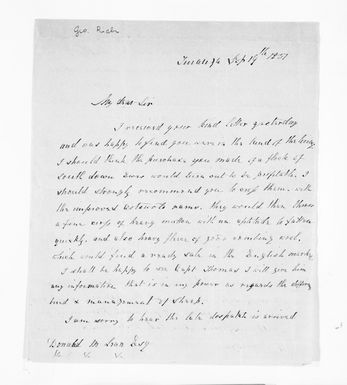 Geo. Rich
Sep 19th 1851
My dear Sir
I received your kind letter yesterday
and was happy to find you were in the land of the living
I should think the purchase you made of a flock of
South down Ewes would turn out to be profitable. I
should strongly recommend you to cross them with
the improved Cotswold rams. They would then throw
a fine carcase of heavy mutton with an aptitude to fatten
quickly, and also heavy fleeces of good combing wool.
Such would find a ready sale in the English market
I shall be happy to see Capt Thomas I will give him
any information that is in my power as regards the
breed & management of Sheep.
I am sorry to hear the late despatch is arrived
Donald McLean Esq